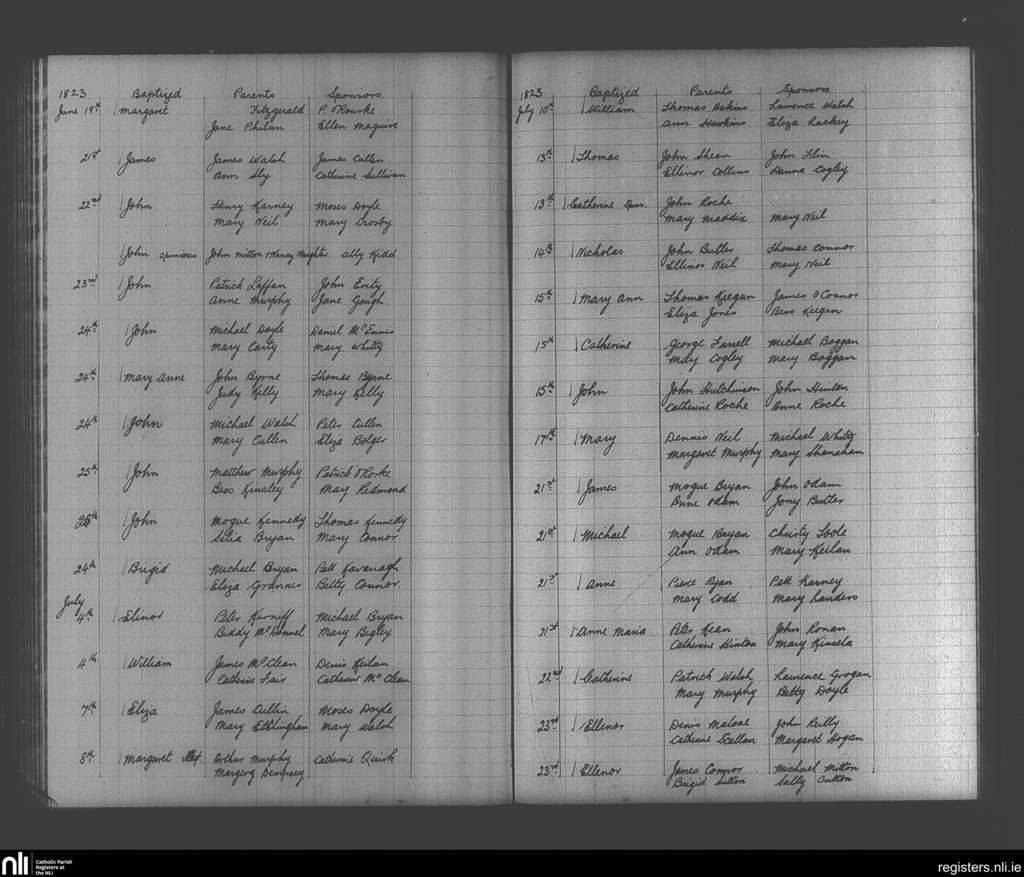 1823 Baptized Parents Sponsors
June 19th Margaret Fitzgerald P. O'Rourke
Jane Philan Ellen Maguire
21st James James Walsh James Cullin
Ann Sly Catherine Sullivan
22nd John Henry Karney Moses Doyle
Mary Neil Mary Crosby
John spurious John Mitton & Nancy ally Kidd
23rd John Patrick Laffan John
Anne Murphy Jane Gough
24th John Michael Doyle Daniel McEnnis
Mary Carty Mary Whitty
24th Mary Anne John Byrne Thomas Byrne
Judy Kelly Mary Kelly
24th John Michael Walsh Peter Cullen
Mary Cullen Eliza Bolger
25th John Matthew Murphy Patrick O'Rorke
Bess Kinsley Mary Redmond
John Mogue Kennedy Thomas Kennedy
Silia Bryan Mary Connor
24th Brigid Michael Bryan Patt Kavanagh
Eliza Betty Connor
July
4th Elinor Peter Michael Bryan
Biddy McDonnel Mary Begley
4th William James McClean Denis Keilan
Catherine Fair Catherine McClean
7th Eliza James Cullin Moses Doyle
Mary Etchingham Mary Walsh
8th Margaret Illegt. Arthur Murphy Catherine Quirk
Margery Dempsey
1823 Baptized Parents Sponsors
July 10th William Thomas Askins Laurence Walsh
Ann Hawkins Eliza Lackey
13th Thomas John Shean John Flin
Ellinor Collins Hanna Cogley
13th Catherine Spur. John Roche
Mary Maddix Mary Neil
14th Nicholas John Butler Thomas Connor
Ellinor Neil Mary Neil
15th Mary Ann Thomas Keegan James O'Connor
Eliza Jones Bess Keegan
15th Catherine George Farrell Michael Boggan
Mary Cogley Mary Boggan
15th John John Hutchinson John Hinton
Catherine Roche Anne Roche
17th Mary Dennis Neil Michael Whitty
Margaret Murphy Mary Shanahan
21st James Mogue Bryan John Odam
Anne Odam Jony Butler
21st Michael Mogue Bryan Christy Toole
Ann Odam Mary Keilan
21st Anne Pierce Ryan Patt Karney
Mary Codd Mary Landers
21st Anne Maria Peter Kean John Ronan
Catherine Hinton Mary Kinsela
22nd Catherine Patrick Walsh Laurence Grogan
Mary Murphy Betty Doyle
23rd Ellenor Denis Malone John Reilly
Catherine Scallan Margaret Hogan
23rd Ellenor James Connor Michael Mitton
Brigid Sutton Sally Sutton
nli Catholic Parish
Registers at
the NLI
registers.nli.ie